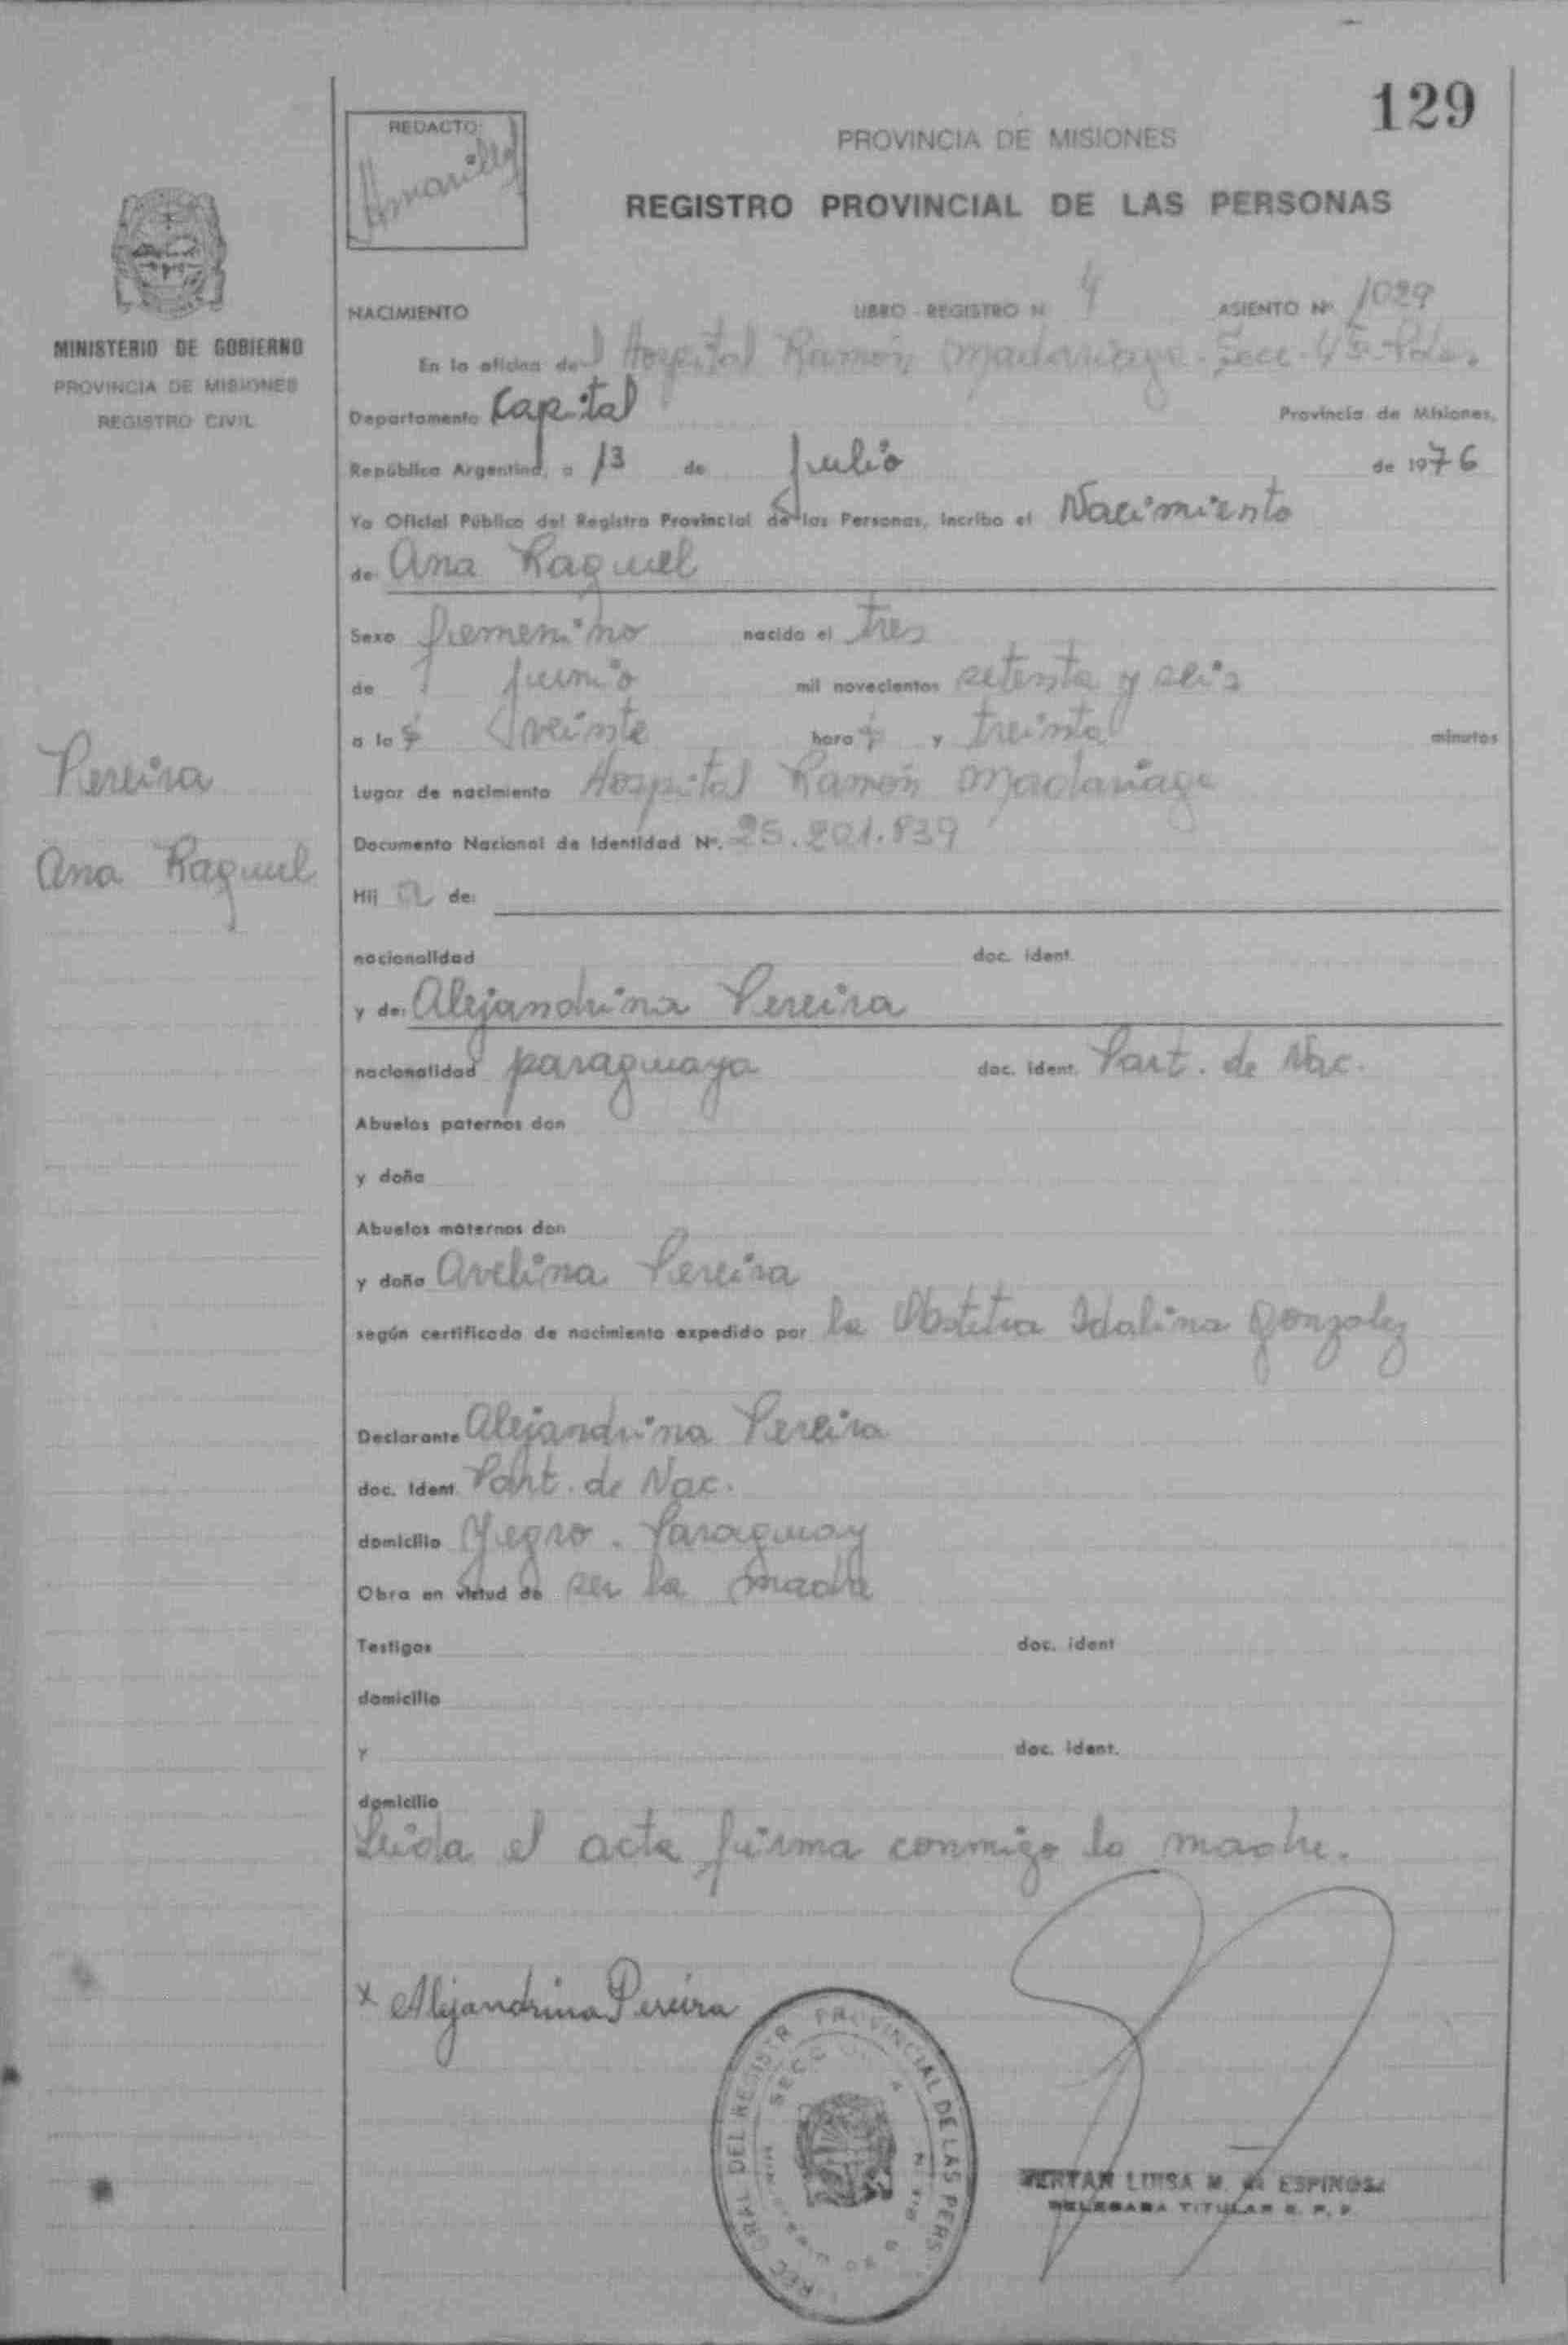 129
REDACTO:
PROVINCIA DE MISIONES
REGISTRO PROVINCIAL DE LAS PERSONAS
MINISTERIO DE GOBIERNO
PROVINCIA DE MISIONES
REGISTRO CIVIL
NACIMIENTO LIBRO - REGISTRO N 4 ASIENTO Nº 1029
En la oficina del Hospital Ramón Madariaga - Secc - 4ta
Departamento Capital Provincia de Misiones,
República Argentina, a 13 de Julio de 1976
Yo Oficial Público del Registro Provincial de las Personas, incribo el Nacimiento
de Ana Raquel
Sexo femenino nacido el tres
de junio mil novecientos setenta y seis
a la s veinte hora s y treinta minutos
Lugar de nacimiento Hospital Ramón Madariaga
Documento Nacional de Identidad Nº. 25.201.839
Pereira
Ana Raquel
Hij a de:
nacionalidad doc. ident.
y de: Alejandrina Pereira
nacionalidad paraguaya doc. ident. Part. de Nac.
Abuelos paternos don
y doña
Abuelos maternos don
y doña Avelina Pereira
según certificado de nacimiento expedido por la Obstetra Idalina Gonzalez
Declarante Alejandrina Pereira
doc. ident. Part. de Nac.
domicilio Yegro. Paraguay
Obra en virtud de ser la madre
Testigos doc. ident
domicilio
Y doc. ident.
domicilio
Leida el acta firma conmigo la madre.
x Alejandrina Pereira
GRAL DEL REGISTR PROVINCIAL DE LAS PERS
LUISA M. ESPINOSA
DELEGADA TITULAR R. P. P.